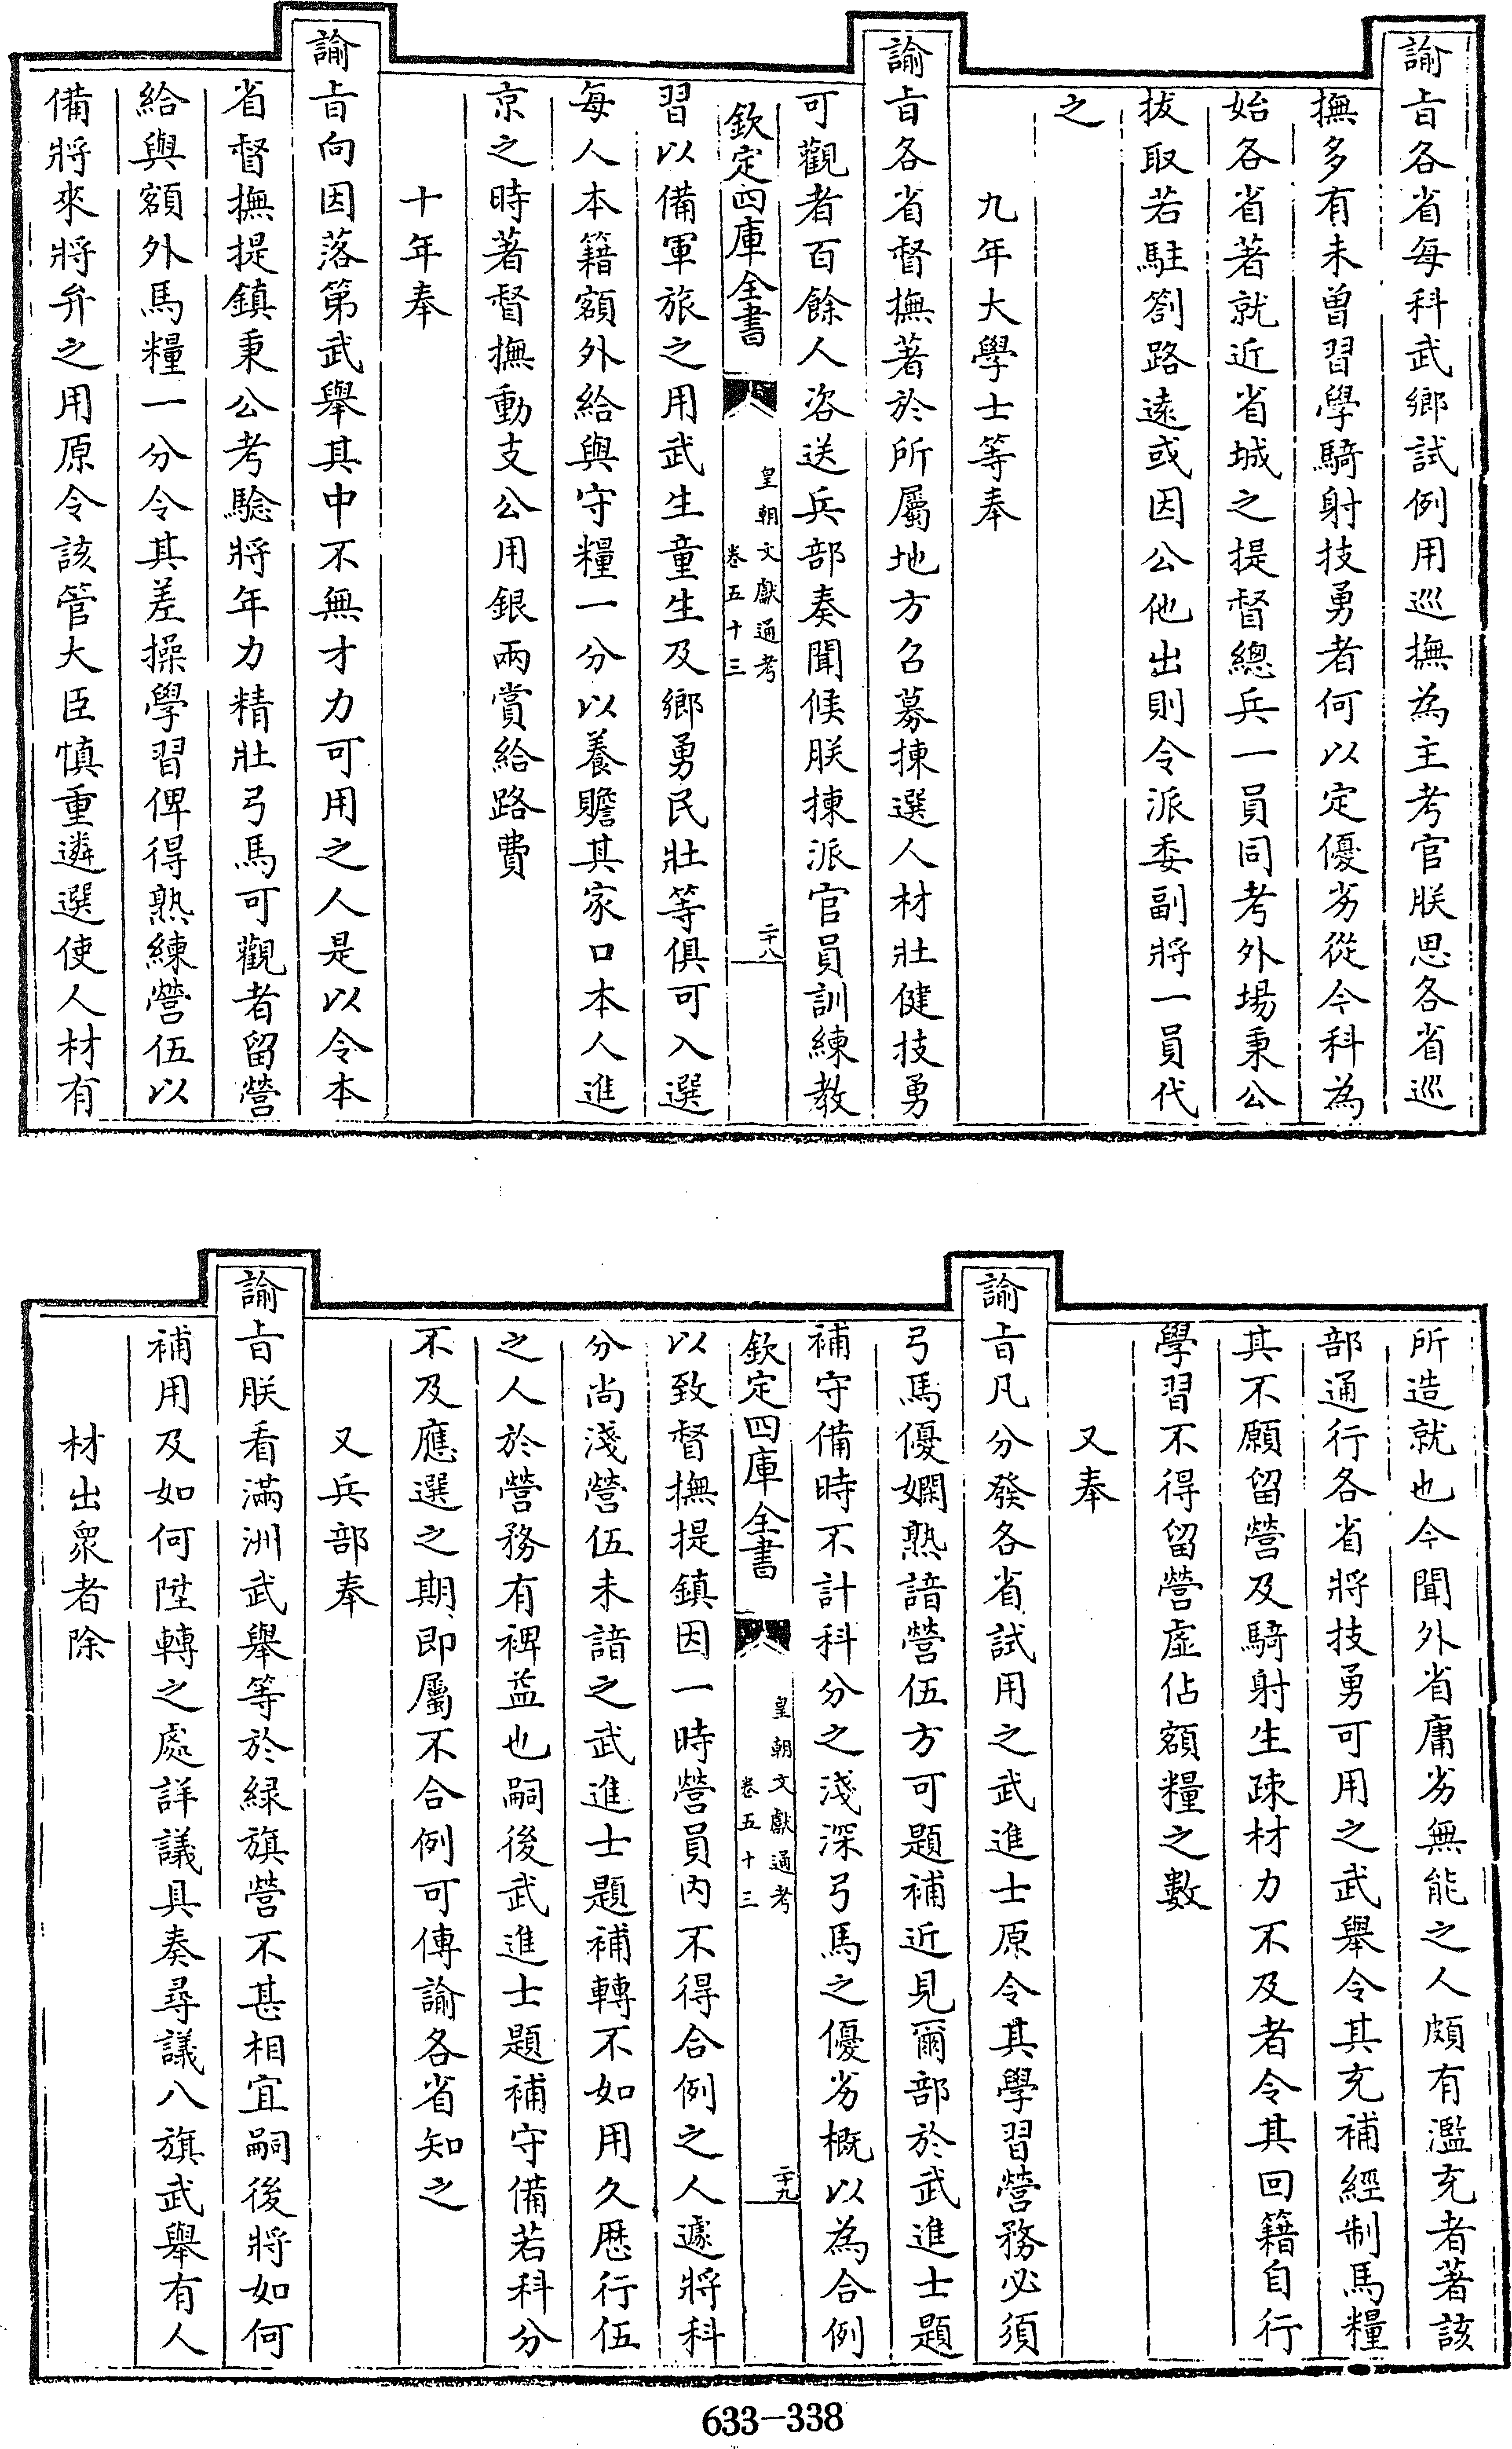 諭旨各省每科武鄉試例用巡撫為主考官朕思各省巡
撫多有未曾習學騎射技勇者何以定優劣從今科為
始各省著就近省城之提督總兵一員同考外場秉公
拔取若駐劄路遠或因公他出則令派委副將一員代
之
九年大學士等奉
諭旨各省督撫著於所屬地方召募揀選人材壯健技勇
可觀者百餘人咨送兵部奏聞候朕揀派官員訓練教
欽定四庫全書
皇朝文獻通考
卷五十三
二十八
習以備軍旅之用武生童生及鄉勇民壯等俱可入選
每人本籍額外給與守糧一分以養贍其家口本人進
京之時著督撫動支公用銀兩賞給路費
十年奉
諭旨向因落第武舉其中不無才力可用之人是以令本
省督撫提鎮秉公考驗將年力精壯弓馬可觀者留營
給與額外馬糧一分令其差操學習俾得熟練營伍以
備將來將弁之用原令該管大臣慎重遴選使人材有
所造就也今聞外省庸劣無能之人頗有濫充者著該
部通行各省將技勇可用之武舉令其充補經制馬糧
其不願留營及騎射生疎材力不及者令其回籍自行
學習不得留營虛佔額糧之數
又奉
諭旨凡分發各省試用之武進士原令其學習營務必須
弓馬優嫻熟諳營伍方可題補近見爾部於武進士題
補守備時不計科分之淺深弓馬之優劣概以為合例
欽定四庫全書
皇朝文獻通考
卷五十三
二十九
以致督撫提鎮因一時營員內不得合例之人遽將科
分尚淺營伍未諳之武進士題補轉不如用久歷行伍
之人於營務有裨益也嗣後武進士題補守備若科分
不及應選之期即屬不合例可傳諭各省知之
又兵部奉
諭旨朕看滿洲武舉等於綠旗營不甚相宜嗣後將如何
補用及如何陞轉之處詳議具奏尋議八旗武舉有人
材出衆者除
633-338